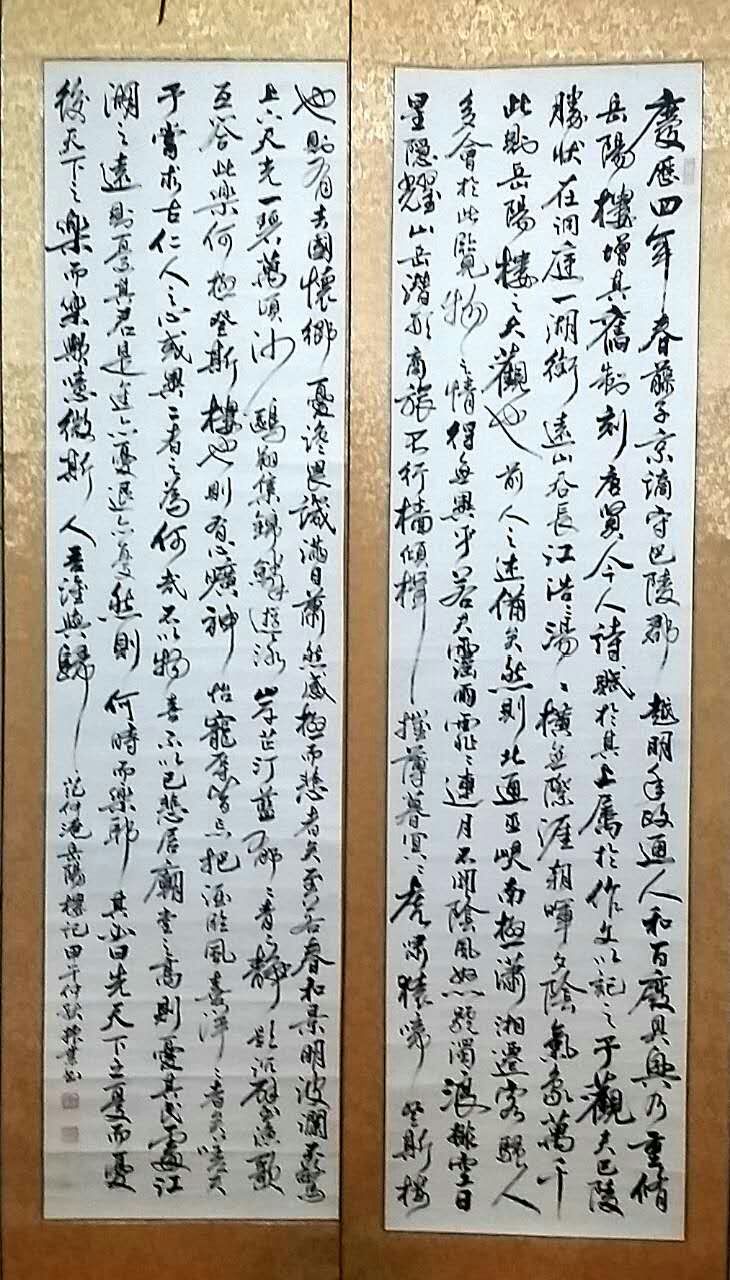 慶歷四年春藤子京謫守巴陵郡越明年政通人和百廢具興乃重脩
岳陽樓增其舊制刻唐賢今人詩賦於其上屬於作文以記之予觀夫巴陵
勝狀在洞庭一湖銜遠山吞長江浩〻湯〻橫無際涯朝暉夕陰氣象萬千
此則岳陽樓之大觀也前人之述備矣然則北通巫峽南極瀟湘遷客騷人
多會於此覽物之情得無異乎若夫霪雨霏〻連月不開陰風怒號濁浪排空日
星隱耀山岳潛形商旅不行檣傾楫摧薄暮冥〻虎嘯猿啼登斯樓
也則有去國懷鄉憂讒畏譏滿目蕭然感極而悲者矣至若春和景明波瀾不驚
上下天光一碧萬頃沙鷗翔集錦鱗遊泳岸芷汀藍郁〻青〻靜影沉璧漁歌
互答此樂何極登斯樓也則有心曠神怡寵辱皆忘把酒臨風喜洋〻者矣嗟夫
予嘗求古仁人之心或異二者之為何哉不以物喜不以己悲居廟堂之高則憂其民處江
湖之遠則憂其君是進亦憂退亦憂然則何時而樂耶其必曰先天下之憂而憂
後天下之樂而樂歟噫微斯人吾誰與歸
范仲淹岳陽樓記甲午仲秋